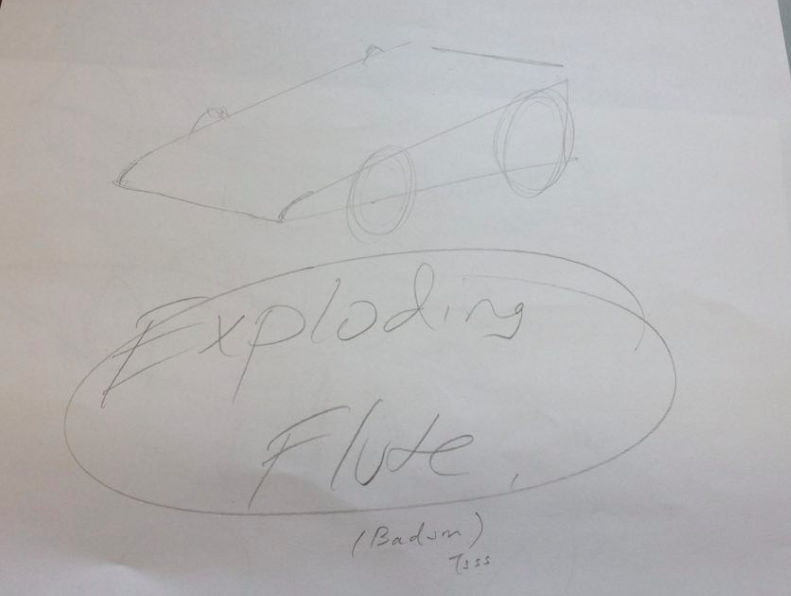 Exploding
Flute,
(Badum)
Tsss